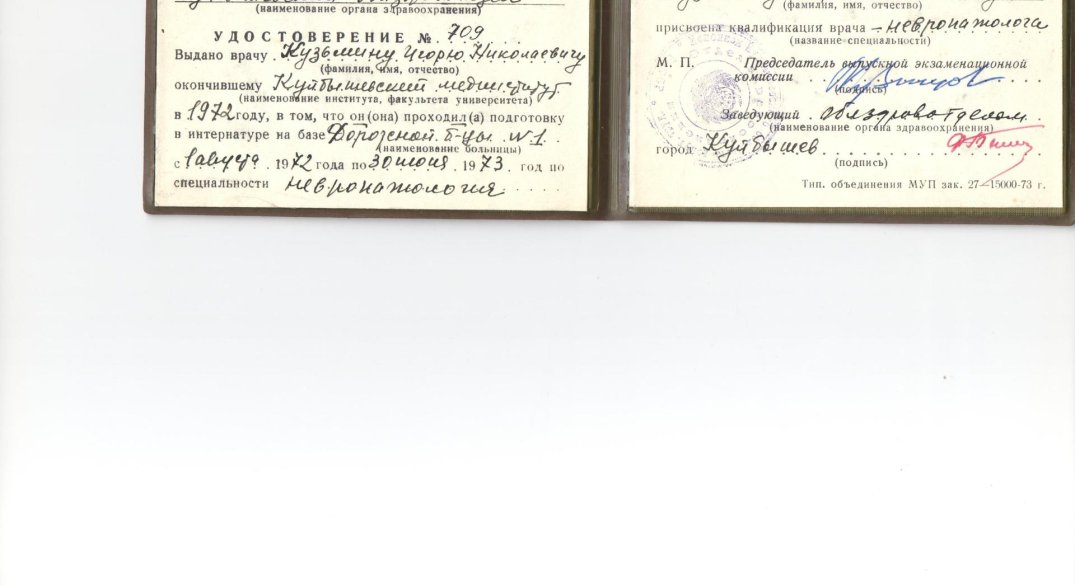 (наименование органа здравоохранения)
УДОСТОВЕРЕНИЕ № 709
Выдано врачу Кузьмину Игорю Николаевичу
(фамилия, имя, отчество)
окончившему Куйбышевский мединститут
(наименование института, факультета университета)
в 1972 году, в том, что он (она) проходил(а) подготовку
в интернатуре на базе Дорожной б-цы №1
(наименование больницы)
с 1 августа 1972 года по 30 июня 1973 год по
специальности невропатология
(фамилия, имя, отчество)
присвоена квалификация врача - невропатолога
(название специальности)
М. П. Председатель выпускной экзаменационной
комиссии
(подпись)
Заведующий облздравотделом
(наименование органа здравоохранения)
город Куйбышев
(подпись)
Тип. объединения МУП зак. 27—15000-73 г.